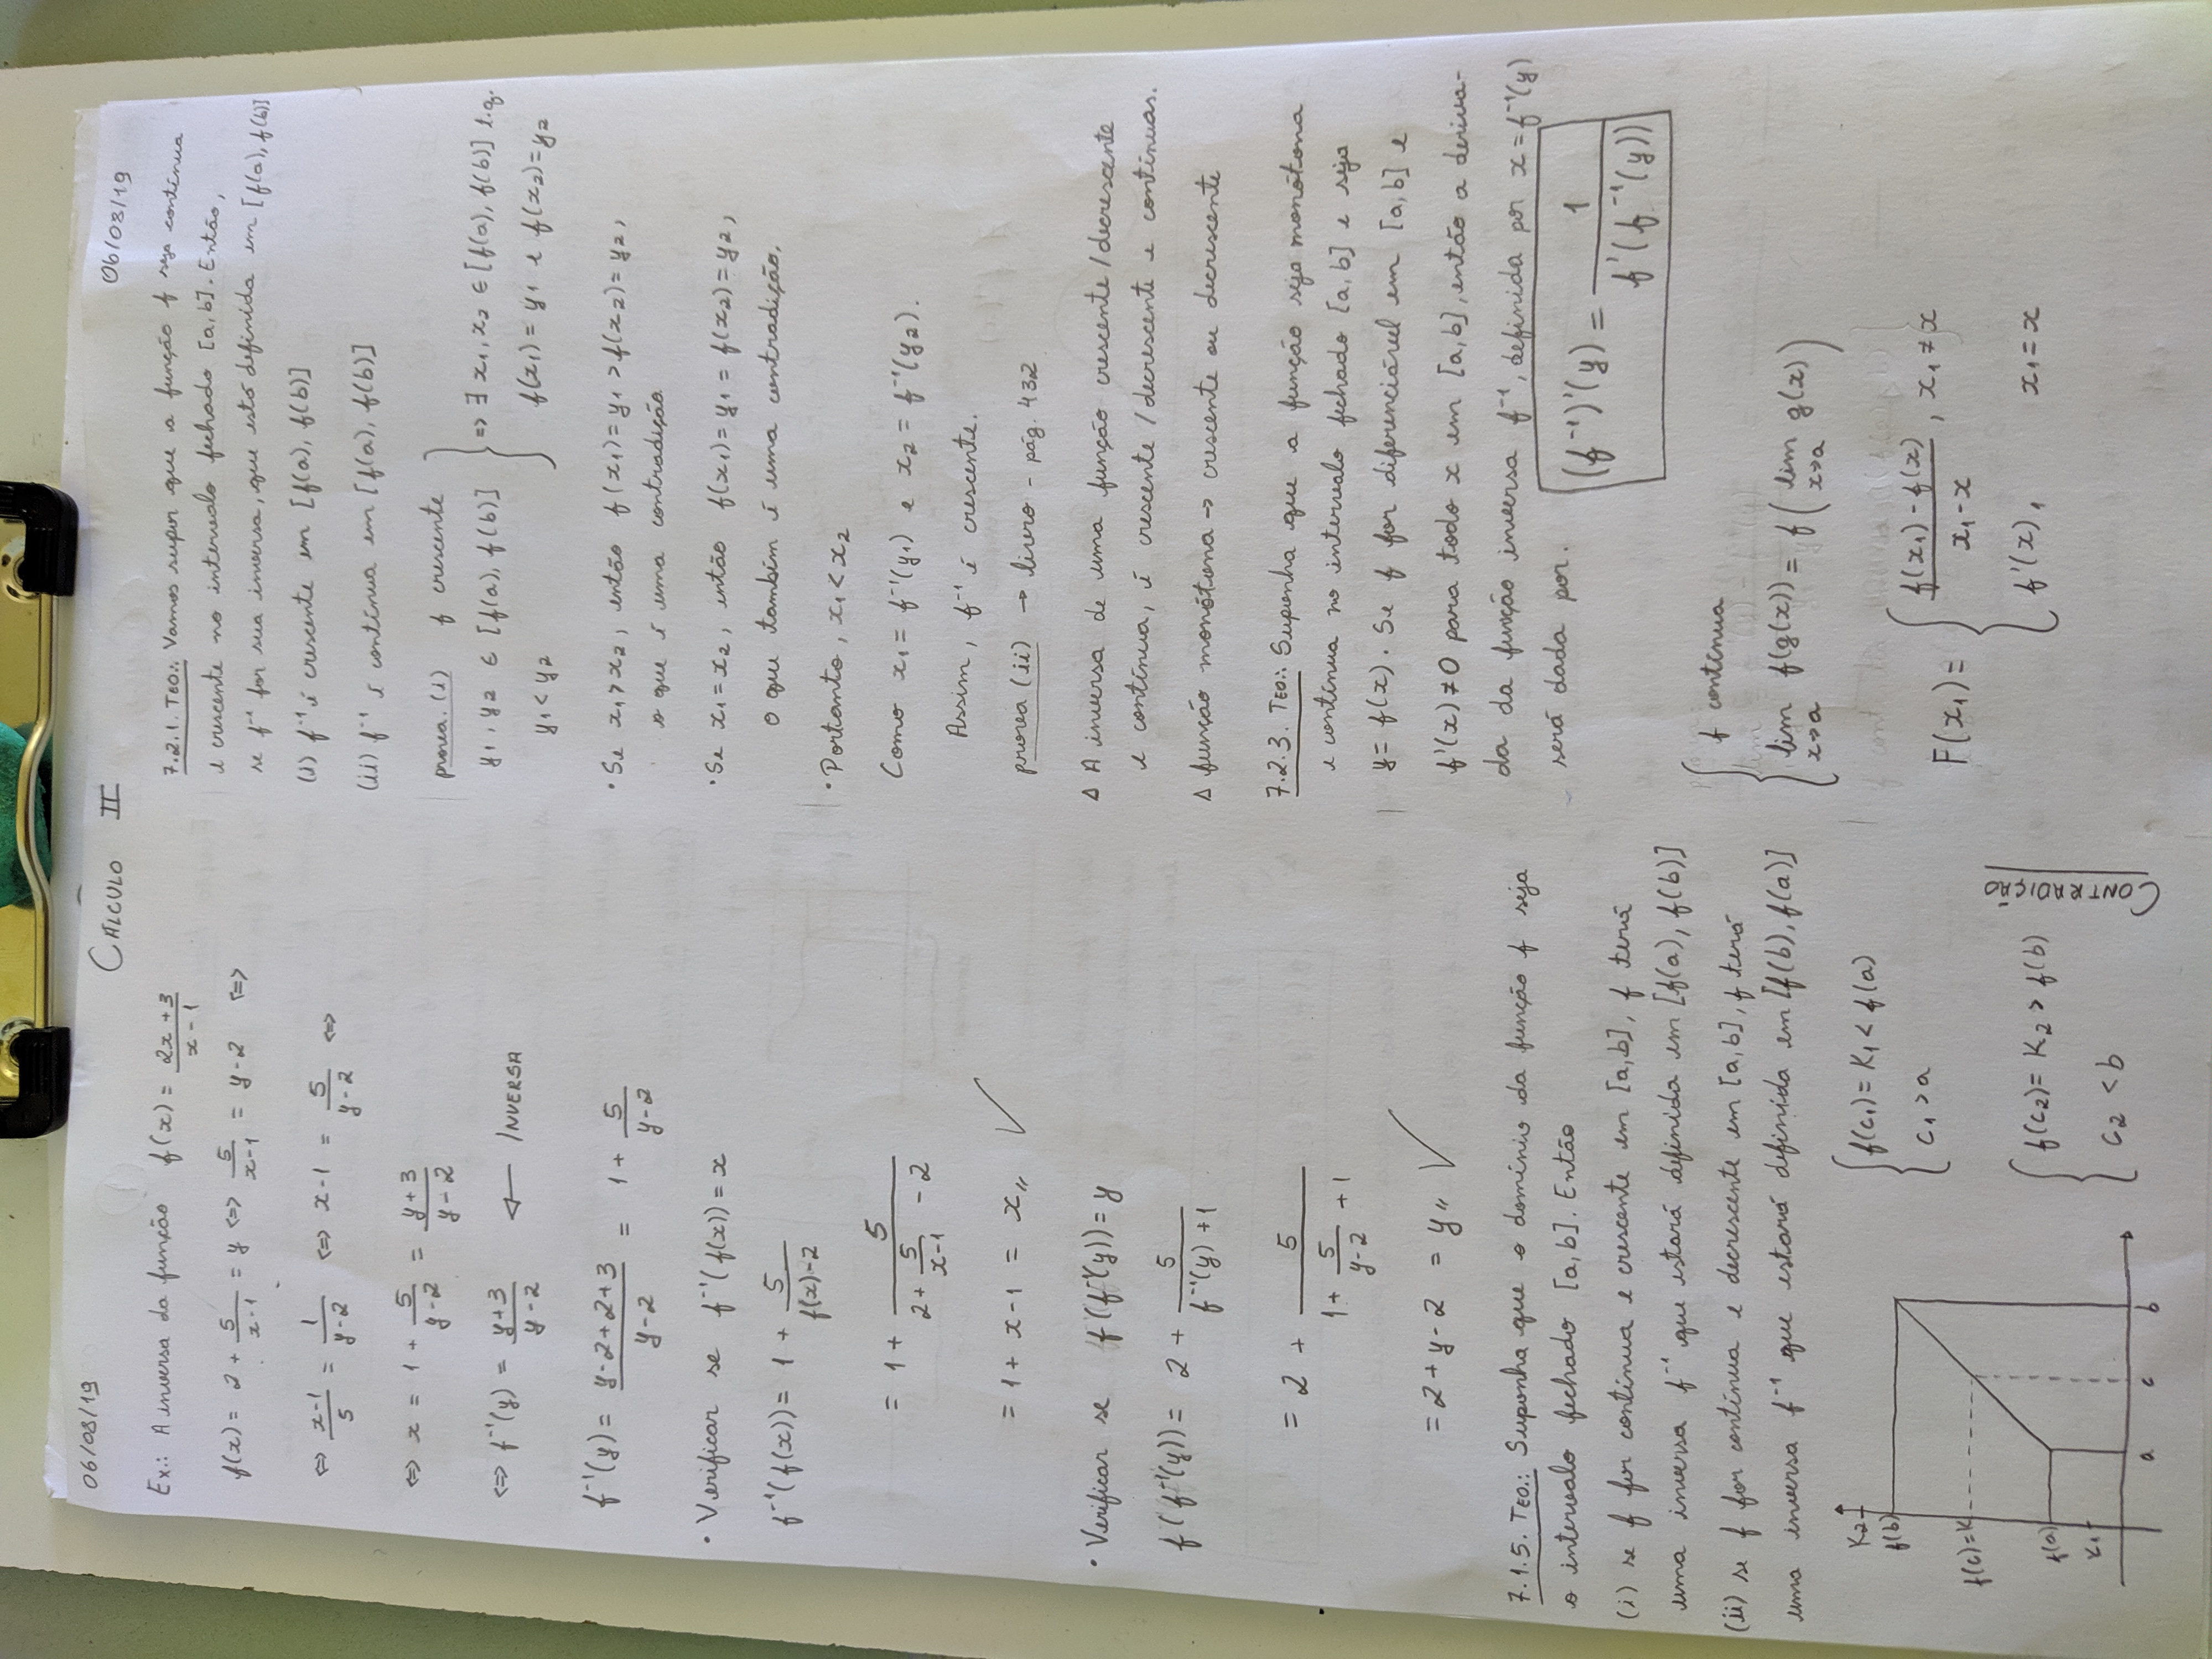 06/08/19
CÁLCULO II
06/08/19
Ex.: A inversa da função f(x) = (2x+3)/(x-1)
f(x) = 2 + 5/(x-1) = y <=> 5/(x-1) = y-2 <=>
<=> (x-1)/5 = 1/(y-2) <=> x-1 = 5/(y-2) <=>
<=> x = 1 + 5/(y-2) = (y+3)/(y-2)
<=> f⁻¹(y) = (y+3)/(y-2) ← INVERSA
f⁻¹(y) = (y-2+2+3)/(y-2) = 1 + 5/(y-2)
• Verificar se f⁻¹(f(x)) = x
f⁻¹(f(x)) = 1 + 5/(f(x)-2)
= 1 + 5/(2 + 5/(x-1) - 2)
= 1 + x-1 = x,, ✓
• Verificar se f(f⁻¹(y)) = y
f(f⁻¹(y)) = 2 + 5/(f⁻¹(y)+1)
= 2 + 5/(1 + 5/(y-2) + 1)
= 2+y-2 = y,, ✓
7.1.5. TEO.: Suponha que o domínio da função f seja
o intervalo fechado [a,b]. Então
(i) se f for contínua e crescente em [a,b], f terá
uma inversa f⁻¹ que estará definida em [f(a), f(b)]
(ii) se f for contínua e decrescente em [a,b], f terá
uma inversa f⁻¹ que estará definida em [f(b), f(a)]
K₂
f(b)
f(c)=K
f(a)
K₁
a c b
{ f(c₁) = K₁ < f(a)
c₁ > a
{ f(c₂) = K₂ > f(b)
c₂ < b
CONTRADIÇÃO
7.2.1. TEO.: Vamos supor que a função f seja contínua
e crescente no intervalo fechado [a,b]. Então,
se f⁻¹ for sua inversa, que está definida em [f(a), f(b)]
(i) f⁻¹ é crescente em [f(a), f(b)]
(ii) f⁻¹ é contínua em [f(a), f(b)]
prova. (i) f crescente
y₁, y₂ ∈ [f(a), f(b)] } => ∃ x₁, x₂ ∈ [f(a), f(b)] t.q.
y₁ < y₂ f(x₁) = y₁ e f(x₂) = y₂
• Se x₁ > x₂, então f(x₁) = y₁ > f(x₂) = y₂,
o que é uma contradição
• Se x₁ = x₂, então f(x₁) = y₁ = f(x₂) = y₂,
o que também é uma contradição.
• Portanto, x₁ < x₂
Como x₁ = f⁻¹(y₁) e x₂ = f⁻¹(y₂).
Assim, f⁻¹ é crescente.
prova (ii) → livro - pág. 432
Δ A inversa de uma função crescente/decrescente
e contínua, é crescente/decrescente e contínuas.
Δ função monótona → crescente ou decrescente
7.2.3. TEO.: Suponha que a função seja monótona
e contínua no intervalo fechado [a,b] e seja
y = f(x). Se f for diferenciável em [a,b] e
f'(x) ≠ 0 para todo x em [a,b], então a deriva-
da da função inversa f⁻¹, definida por x = f⁻¹(y)
será dada por. (f⁻¹)'(y) = 1/f'(f⁻¹(y))
{ f contínua
lim x→a f(g(x)) = f( lim x→a g(x) )
F(x₁) = { (f(x₁) - f(x))/(x₁-x), x₁ ≠ x
f'(x), x₁ = x